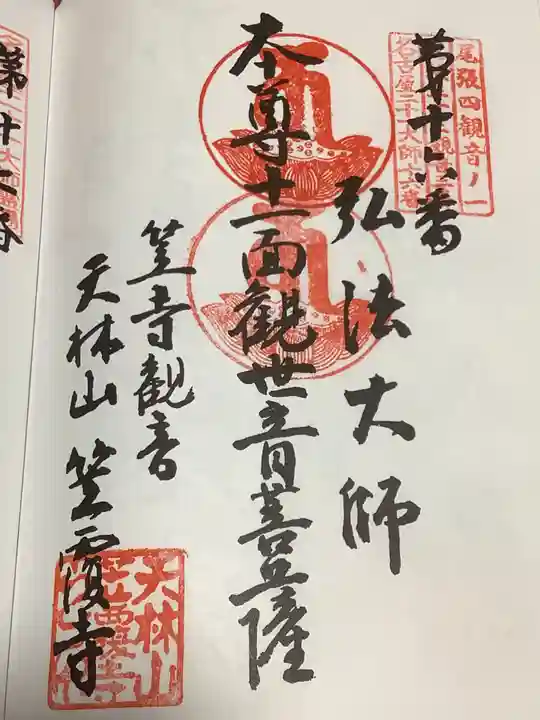 尾張四観音ノ一
名古屋二十一大師十六番
第十六番
弘法大師
本尊十一面観世音菩薩
笠寺観音
天林山 笠覆寺
天林山
笠覆寺
第十二番